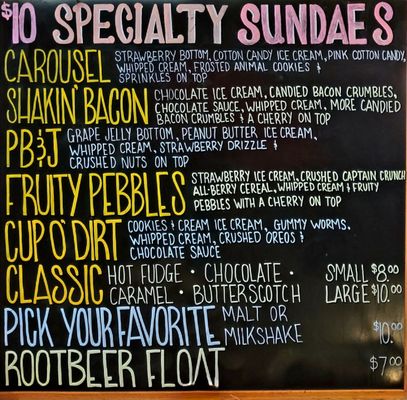 $10 SPECIALTY SUNDAES
CAROUSEL STRAWBERRY BOTTOM, COTTON CANDY ICE CREAM, PINK COTTON CANDY,
WHIPPED CREAM, FROSTED ANIMAL COOKIES &
SPRINKLES ON TOP
SHAKIN' BACON CHOCOLATE ICE CREAM, CANDIED BACON CRUMBLES,
CHOCOLATE SAUCE, WHIPPED CREAM, MORE CANDIED
BACON CRUMBLES & A CHERRY ON TOP
PB&J GRAPE JELLY BOTTOM, PEANUT BUTTER ICE CREAM,
WHIPPED CREAM, STRAWBERRY DRIZZLE &
CRUSHED NUTS ON TOP
FRUITY PEBBLES STRAWBERRY ICE CREAM, CRUSHED CAPTAIN CRUNCH
ALL-BERRY CEREAL, WHIPPED CREAM & FRUITY
PEBBLES WITH A CHERRY ON TOP
CUP O' DIRT COOKIES & CREAM ICE CREAM, GUMMY WORMS,
WHIPPED CREAM, CRUSHED OREOS &
CHOCOLATE SAUCE
CLASSIC HOT FUDGE • CHOCOLATE • SMALL $8.00
CARAMEL • BUTTERSCOTCH LARGE $10.00
PICK YOUR FAVORITE MALT OR
MILKSHAKE $10.00
ROOTBEER FLOAT $7.00